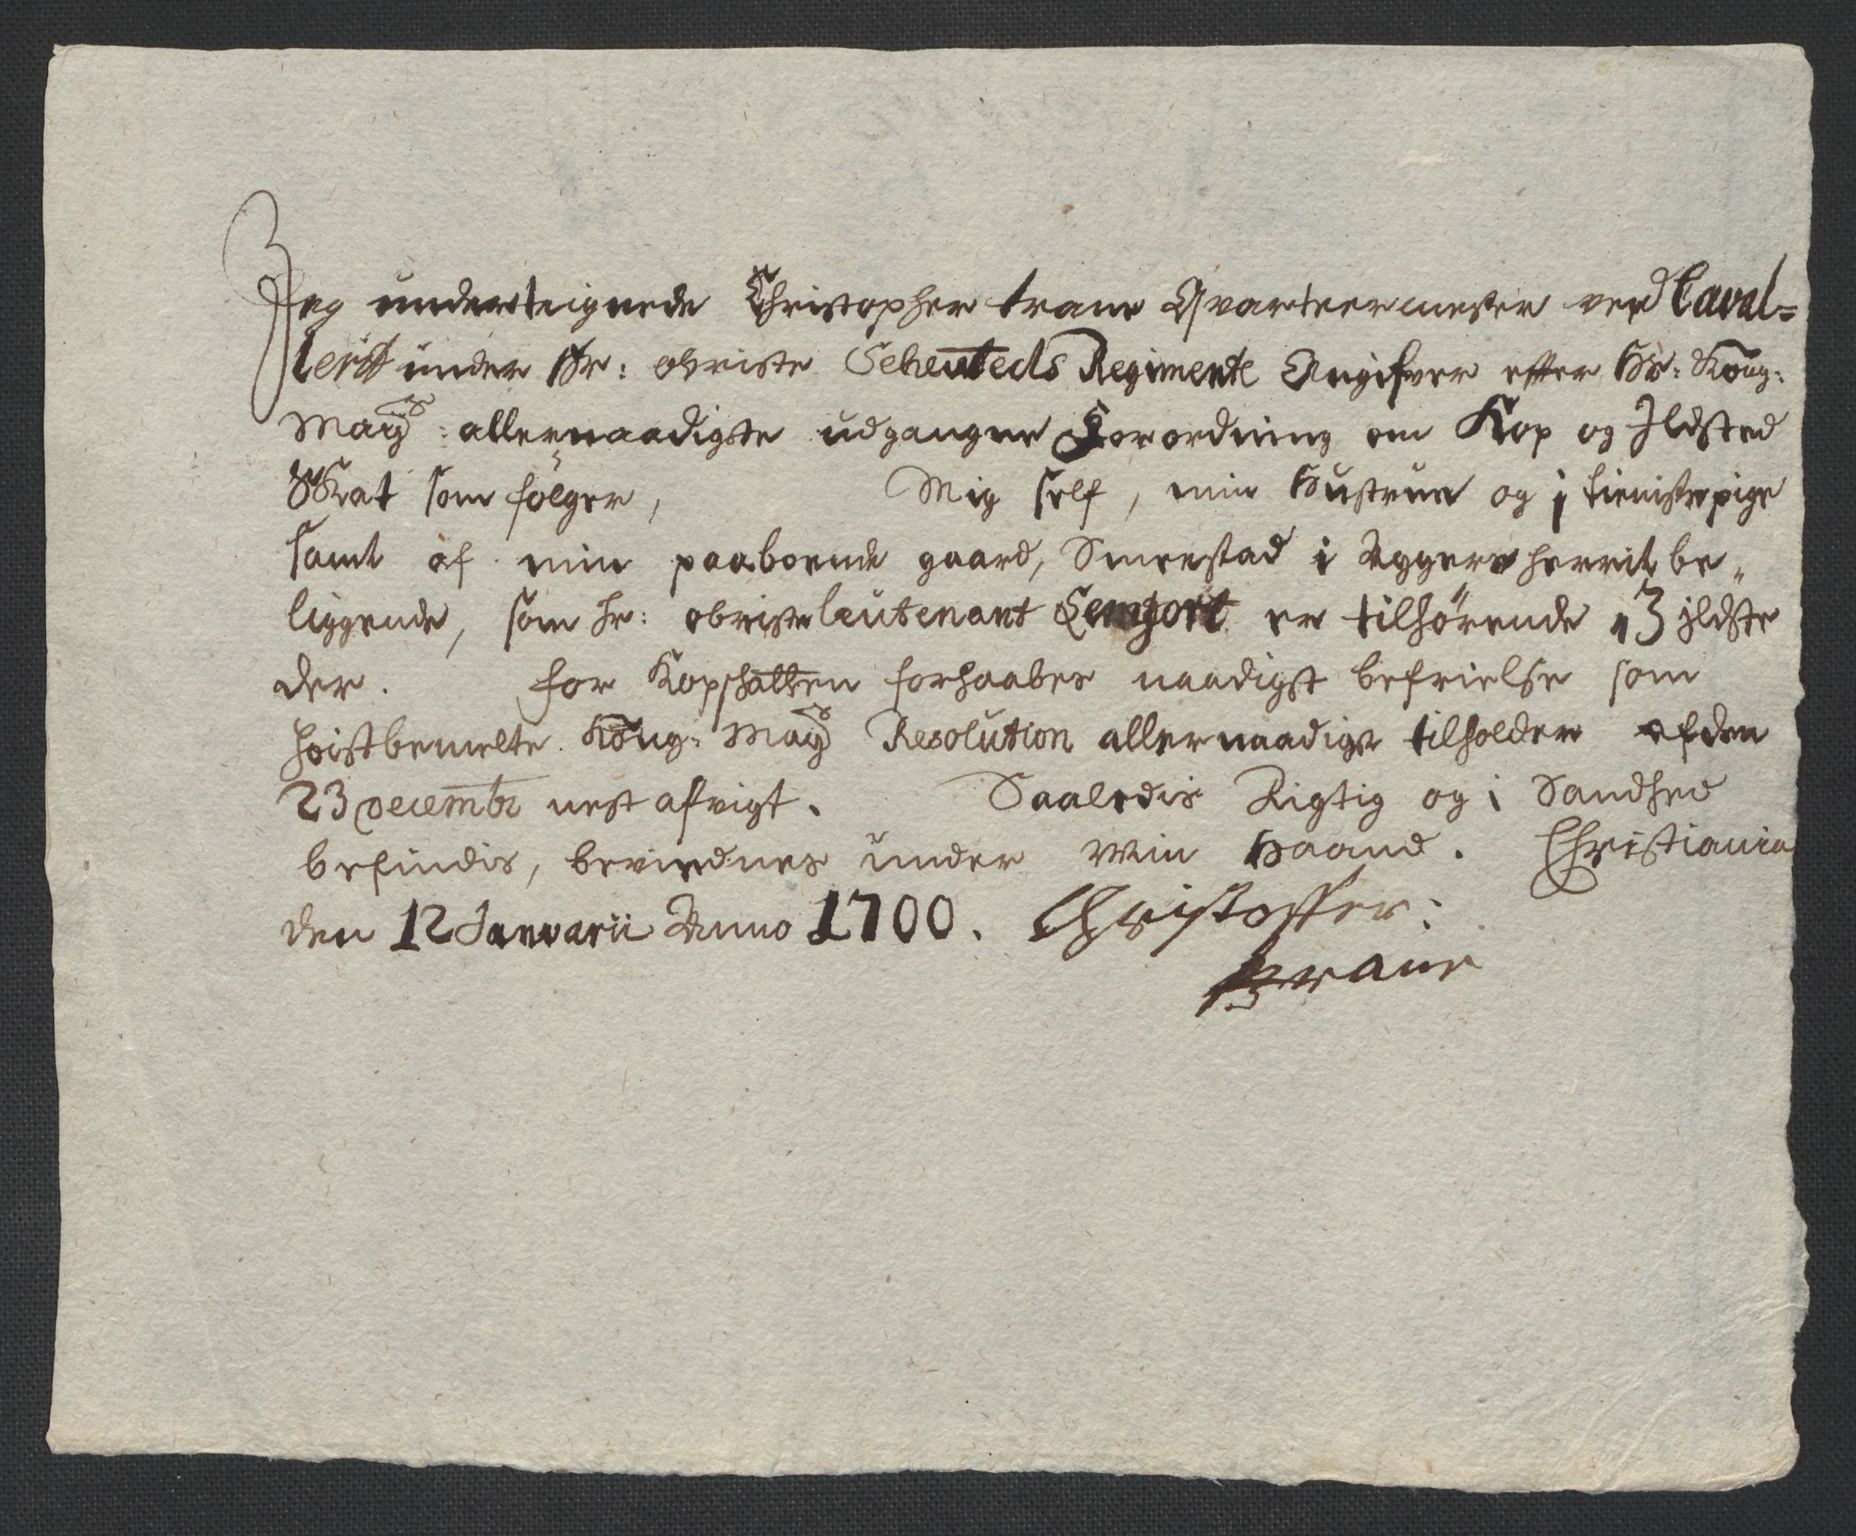 Jeg underteignede Christopher trane Qvarteermester ved Caval-
leriet under Hr: obriste Scheuteds Regimente Angifver effter Hs: Kong:
Mayts: allernaadigste udgangne Forordning om Kop og Ildsted
Skat som følger, Mig self, min Hustrue og 1 tienistepige
samt af min paaboende gaard, Smestad i Aggers herrit be,,
liggende, som hr: obristeleutenant er tilhørende, 3 ildste
der. for Kopschatten forhaabes naadigst befrielse som
høistbemelte Kong: Mayts Resolution allernaadigst tilholder af den
23 decembr nest afvigt. Saaledis Rigtig og i Sandhed
befindis, bevidnes under Min Haand. Christiania
den 12 Januarii Anno 1700. Christoffer:
Trane